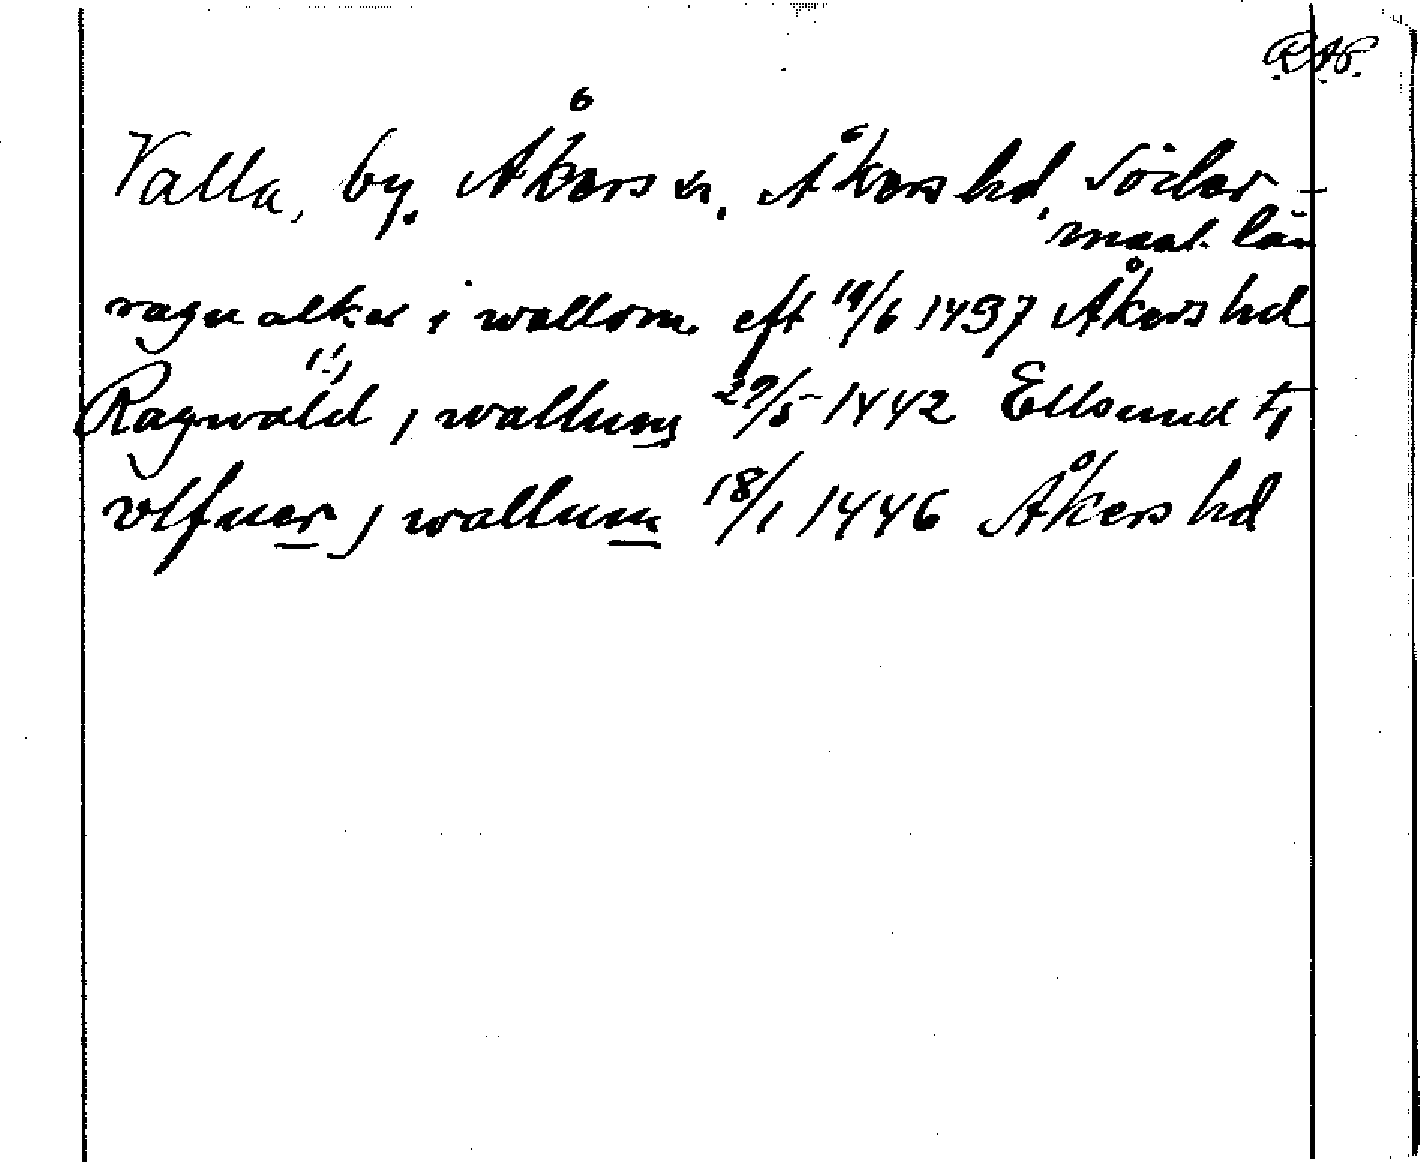 R.A.P.
Valla, by. Åkers sn. Åkers hd, Söder-
manl. län
ragualker i wallom eft 19/6 1437 Åkers hd
Ragwald (!) j wallum 29/5 1442 Ellsund
vlfuer j wallum 18/1 1446 Åkers hd